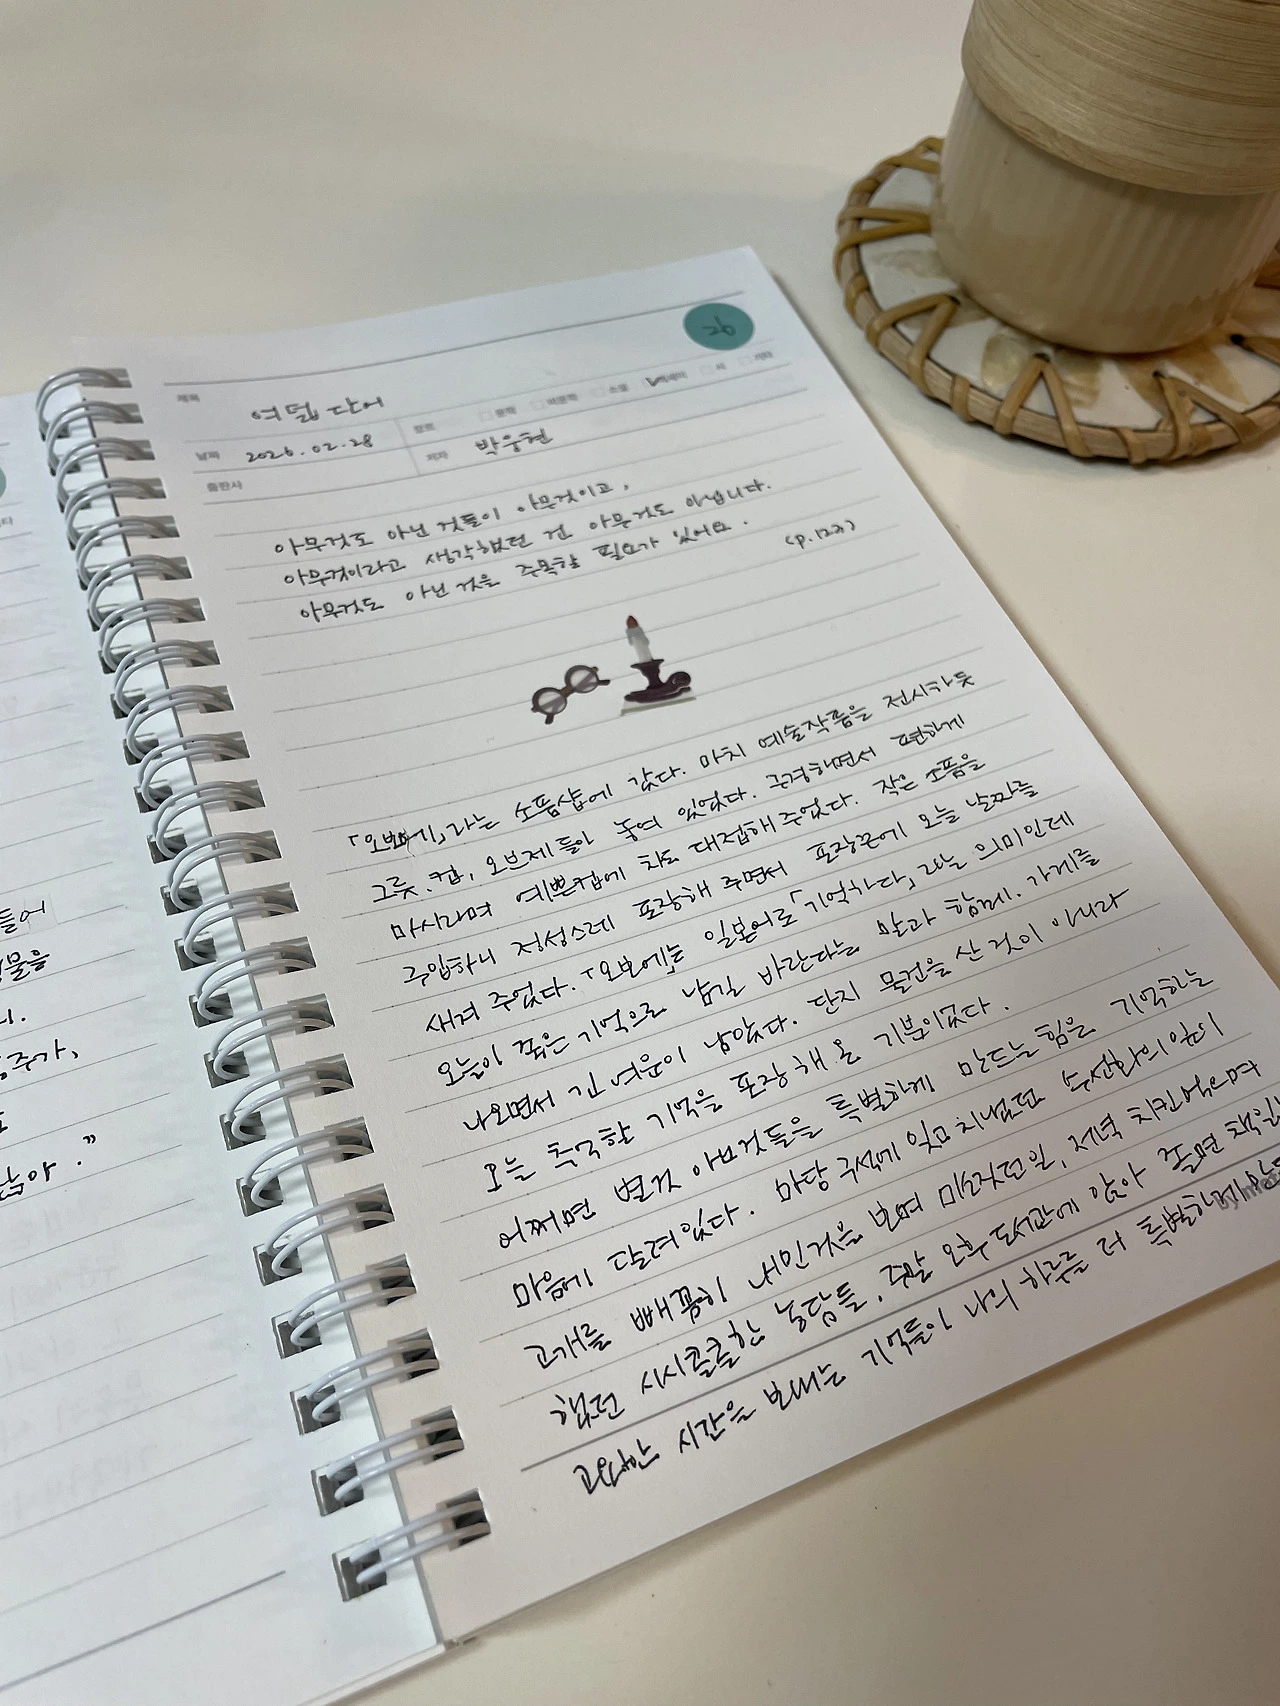 들어
물을
니.
주가,
수야."
26
제목 여덟 단어
장르 문학 비문학 소설 에세이 시 기타
날짜 2026.02.28
저자 박웅현
출판사
아무것도 아닌 것들이 아무것이고,
아무것이라고 생각했던 건 아무것도 아닙니다.
아무것도 아닌 것을 주목할 필요가 있어요.
(p.123)
「오브에」라는 소품샵에 갔다. 마치 예술작품을 전시하듯
그릇, 컵, 오브제들이 놓여 있었다. 구경하면서 편하게
마시라며 예쁜컵에 차도 대접해 주었다. 작은 소품을
구입하니 정성스레 포장해 주면서 포장끈에 오늘 날짜를
새겨 주었다. 「오보에」는 일본어로 「기억하다」라는 의미인데
오늘이 좋은 기억으로 남길 바란다는 말과 함께. 가게를
나오면서 긴 여운이 남았다. 단지 물건을 산 것이 아니라
오늘 추억할 기억을 포장해 온 기분이었다.
어쩌면 별거 아닌것들을 특별하게 만드는 힘을 기억하는
마음에 달려있다. 마당 구석에 잊고 지냈던 수선화의 잎이
고개를 빼꼼히 내민것을 보며 미소지은일, 저녁 치킨먹으며
했던 시시콜콜한 농담들, 주말 오후 도서관에 앉아 졸면 책읽
고요한 시간을 보내는 기억들이 나의 하루를 더 특별하게